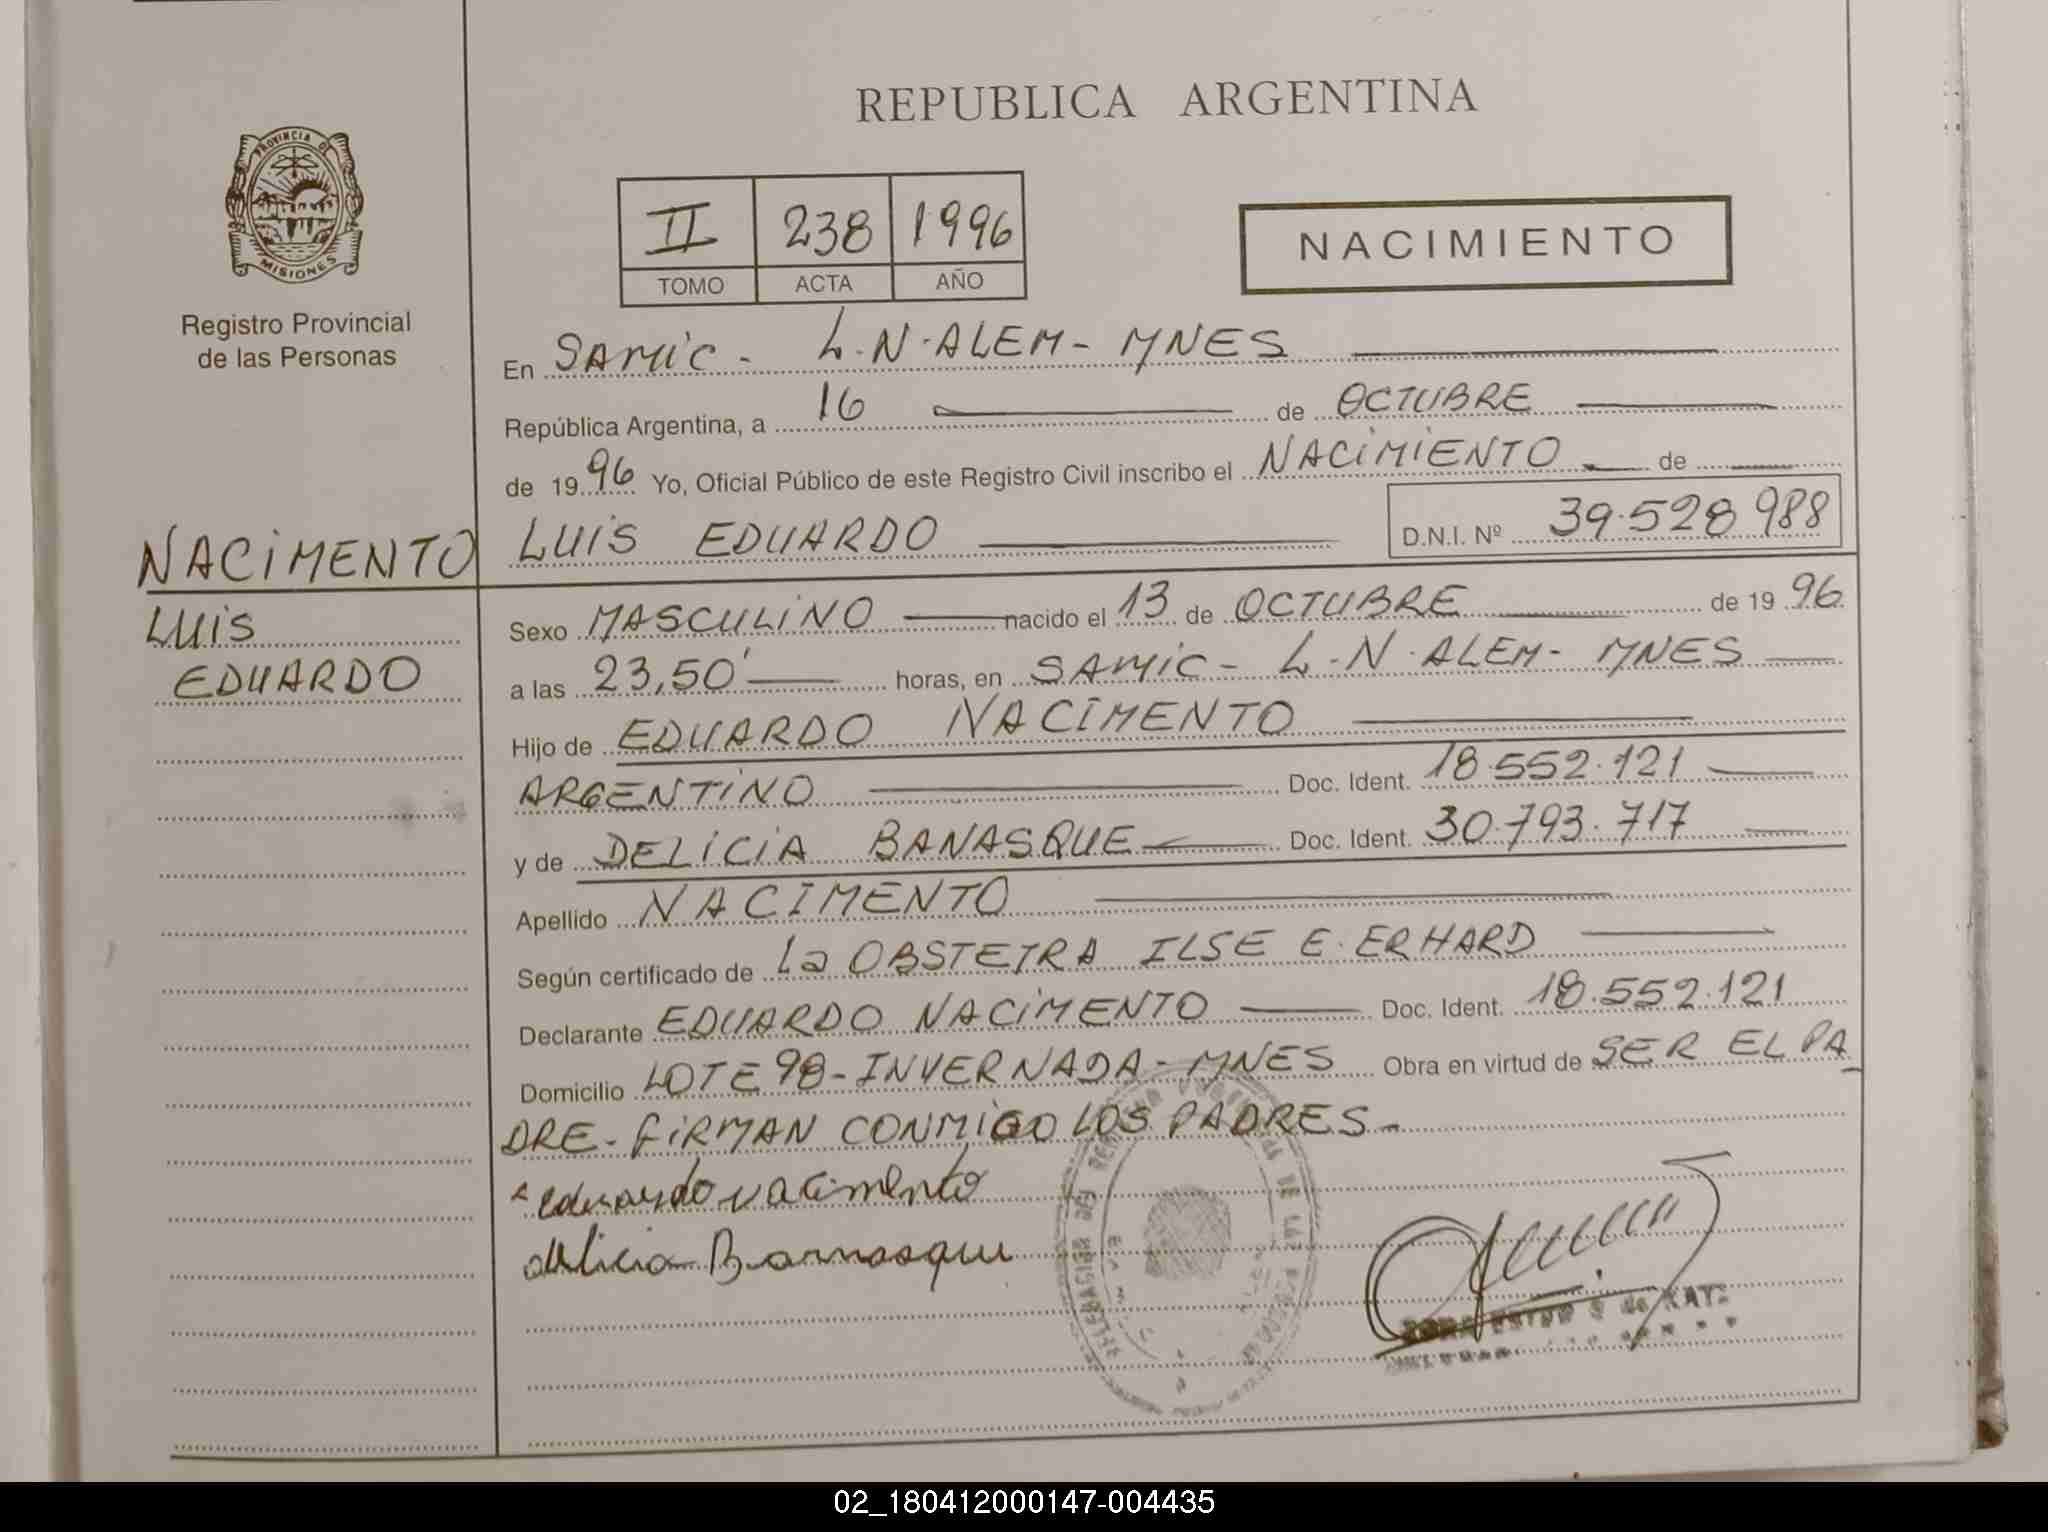 REPUBLICA ARGENTINA
PROVINCIA DE
MISIONES
Registro Provincial
de las Personas
II 238 1996
TOMO ACTA AÑO
NACIMIENTO
En SAMIC - L.N. ALEM - MNES
República Argentina, a 16 de OCTUBRE
de 1996 Yo, Oficial Público de este Registro Civil inscribo el NACIMIENTO de
NACIMENTO LUIS EDUARDO D.N.I. Nº 39.528.988
LUIS
EDUARDO
Sexo MASCULINO nacido el 13 de OCTUBRE de 1996
a las 23,50' horas, en SAMIC - L.N. ALEM - MNES
Hijo de EDUARDO NACIMENTO
ARGENTINO Doc. Ident. 18.552.121
y de DELICIA BANASQUE Doc. Ident. 30.793.717
Apellido NACIMENTO
Según certificado de La OBSTETRA ILSE E. ERHARD
Declarante EDUARDO NACIMENTO Doc. Ident. 18.552.121
Domicilio LOTE 98 - INVERNADA - MNES Obra en virtud de SER EL PA
DRE - FIRMAN CONMIGO LOS PADRES -
eduardo nacimento
delicia
02_180412000147-004435